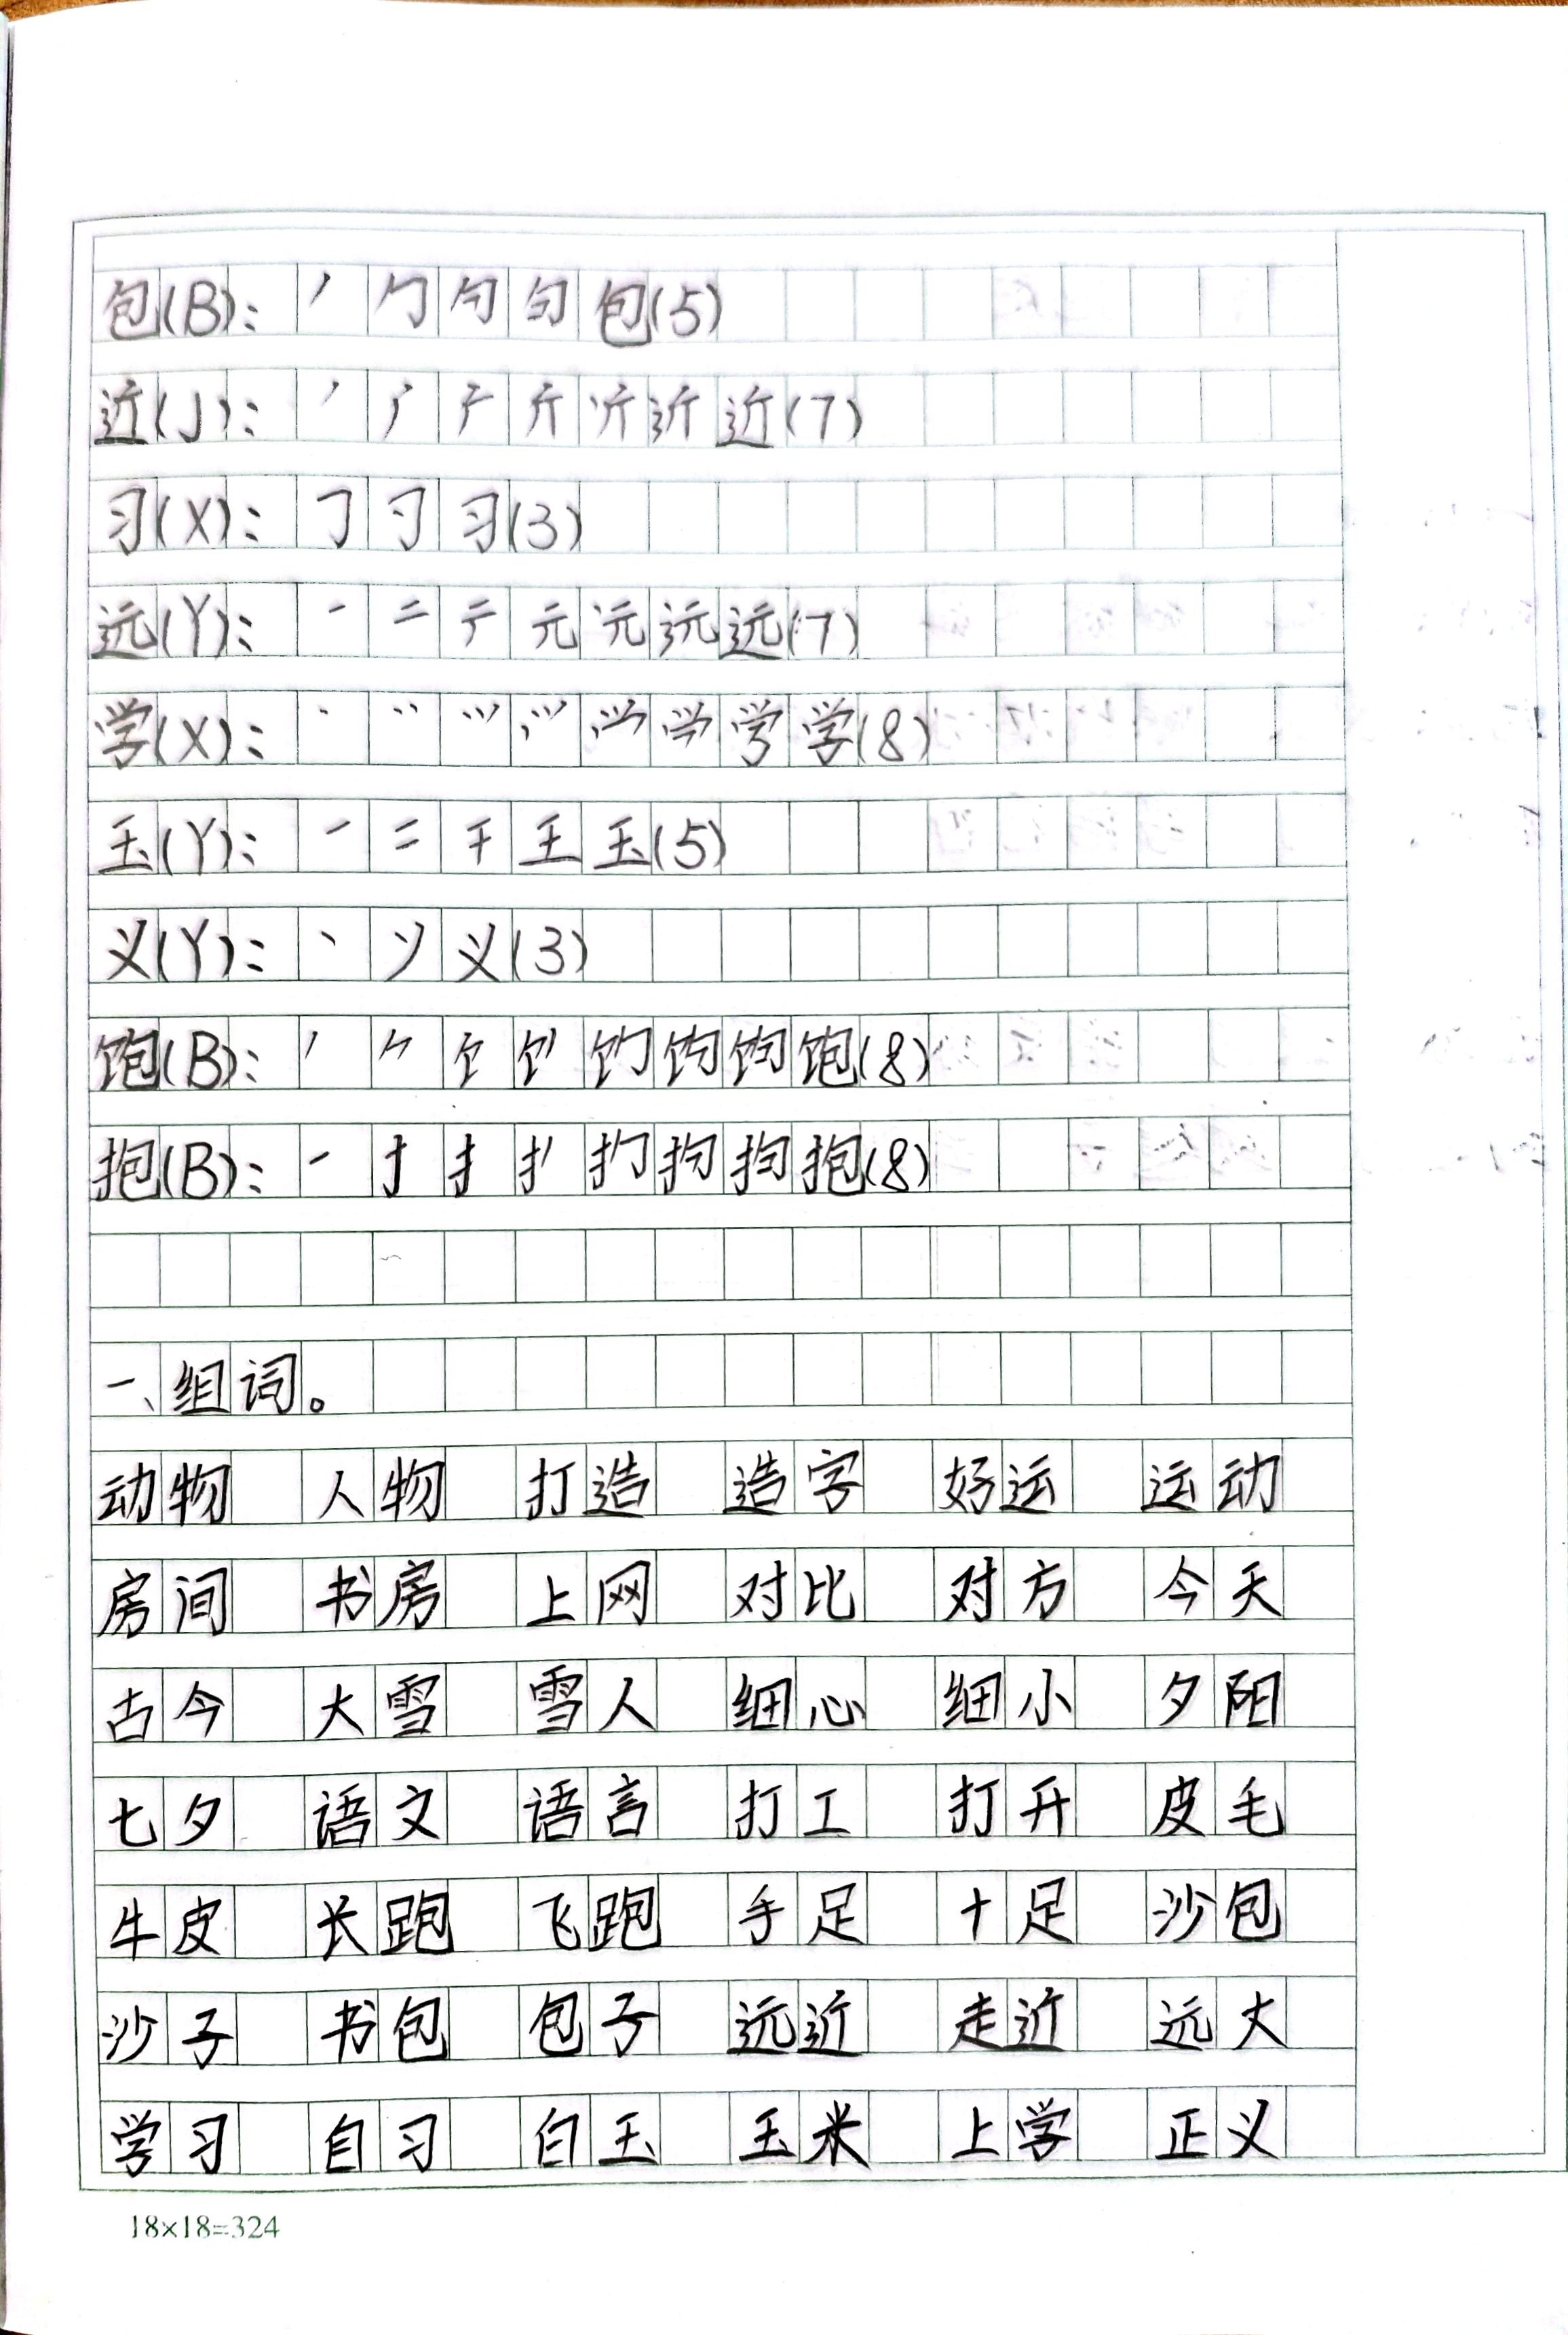 包(B): 丿 勹 勺 匀 包(5)
近(J): 丿 厂 斤 斤 近(7)
习(X): 𠃌 习 习(3)
远(Y): 一 二 テ 元 远(7)
学(X): 丶 丷 ⺍ 学(8)
玉(Y): 一 二 干 王 玉(5)
义(Y): 丶 ソ 义(3)
饱(B): 丿 𠂉 饣 饣 饱(8)
抱(B): 一 扌 扌 抱(8)
一、组词。
动物 人物 打造 造字 好运 运动
房间 书房 上网 对比 对方 今天
古今 大雪 雪人 细心 细小 夕阳
七夕 语文 语言 打工 打开 皮毛
牛皮 长跑 飞跑 手足 十足 沙包
沙子 书包 包子 远近 走近 远大
学习 自习 白玉 玉米 上学 正义
18×18=324